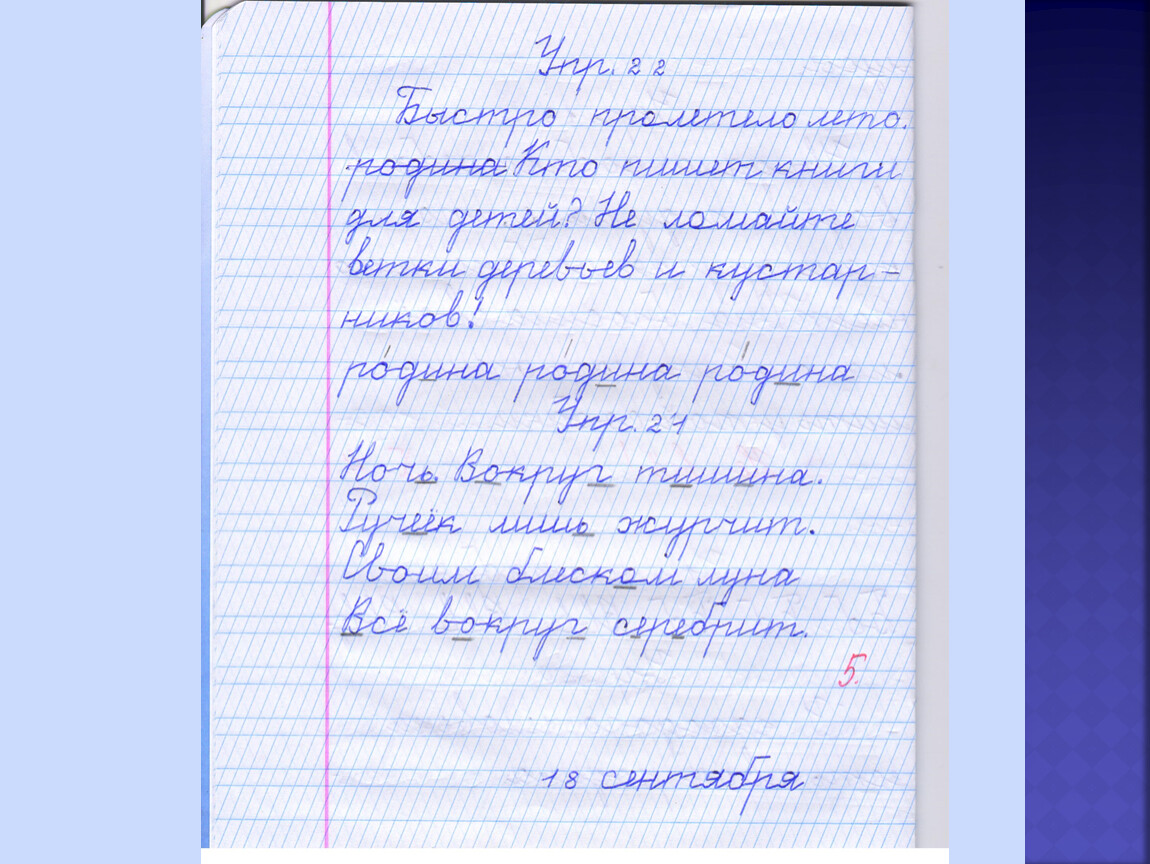 Упр. 22
Быстро пролетело лето.
родина Кто пишет книги
для детей? Не ломайте
ветки деревьев и кустар-
ников!
ро́дина ро́дина ро́дина
Упр. 21
Ночь. Вокруг тишина.
Ручеёк лишь журчит.
Своим блеском луна
Всё вокруг серебрит.
5.
18 сентября